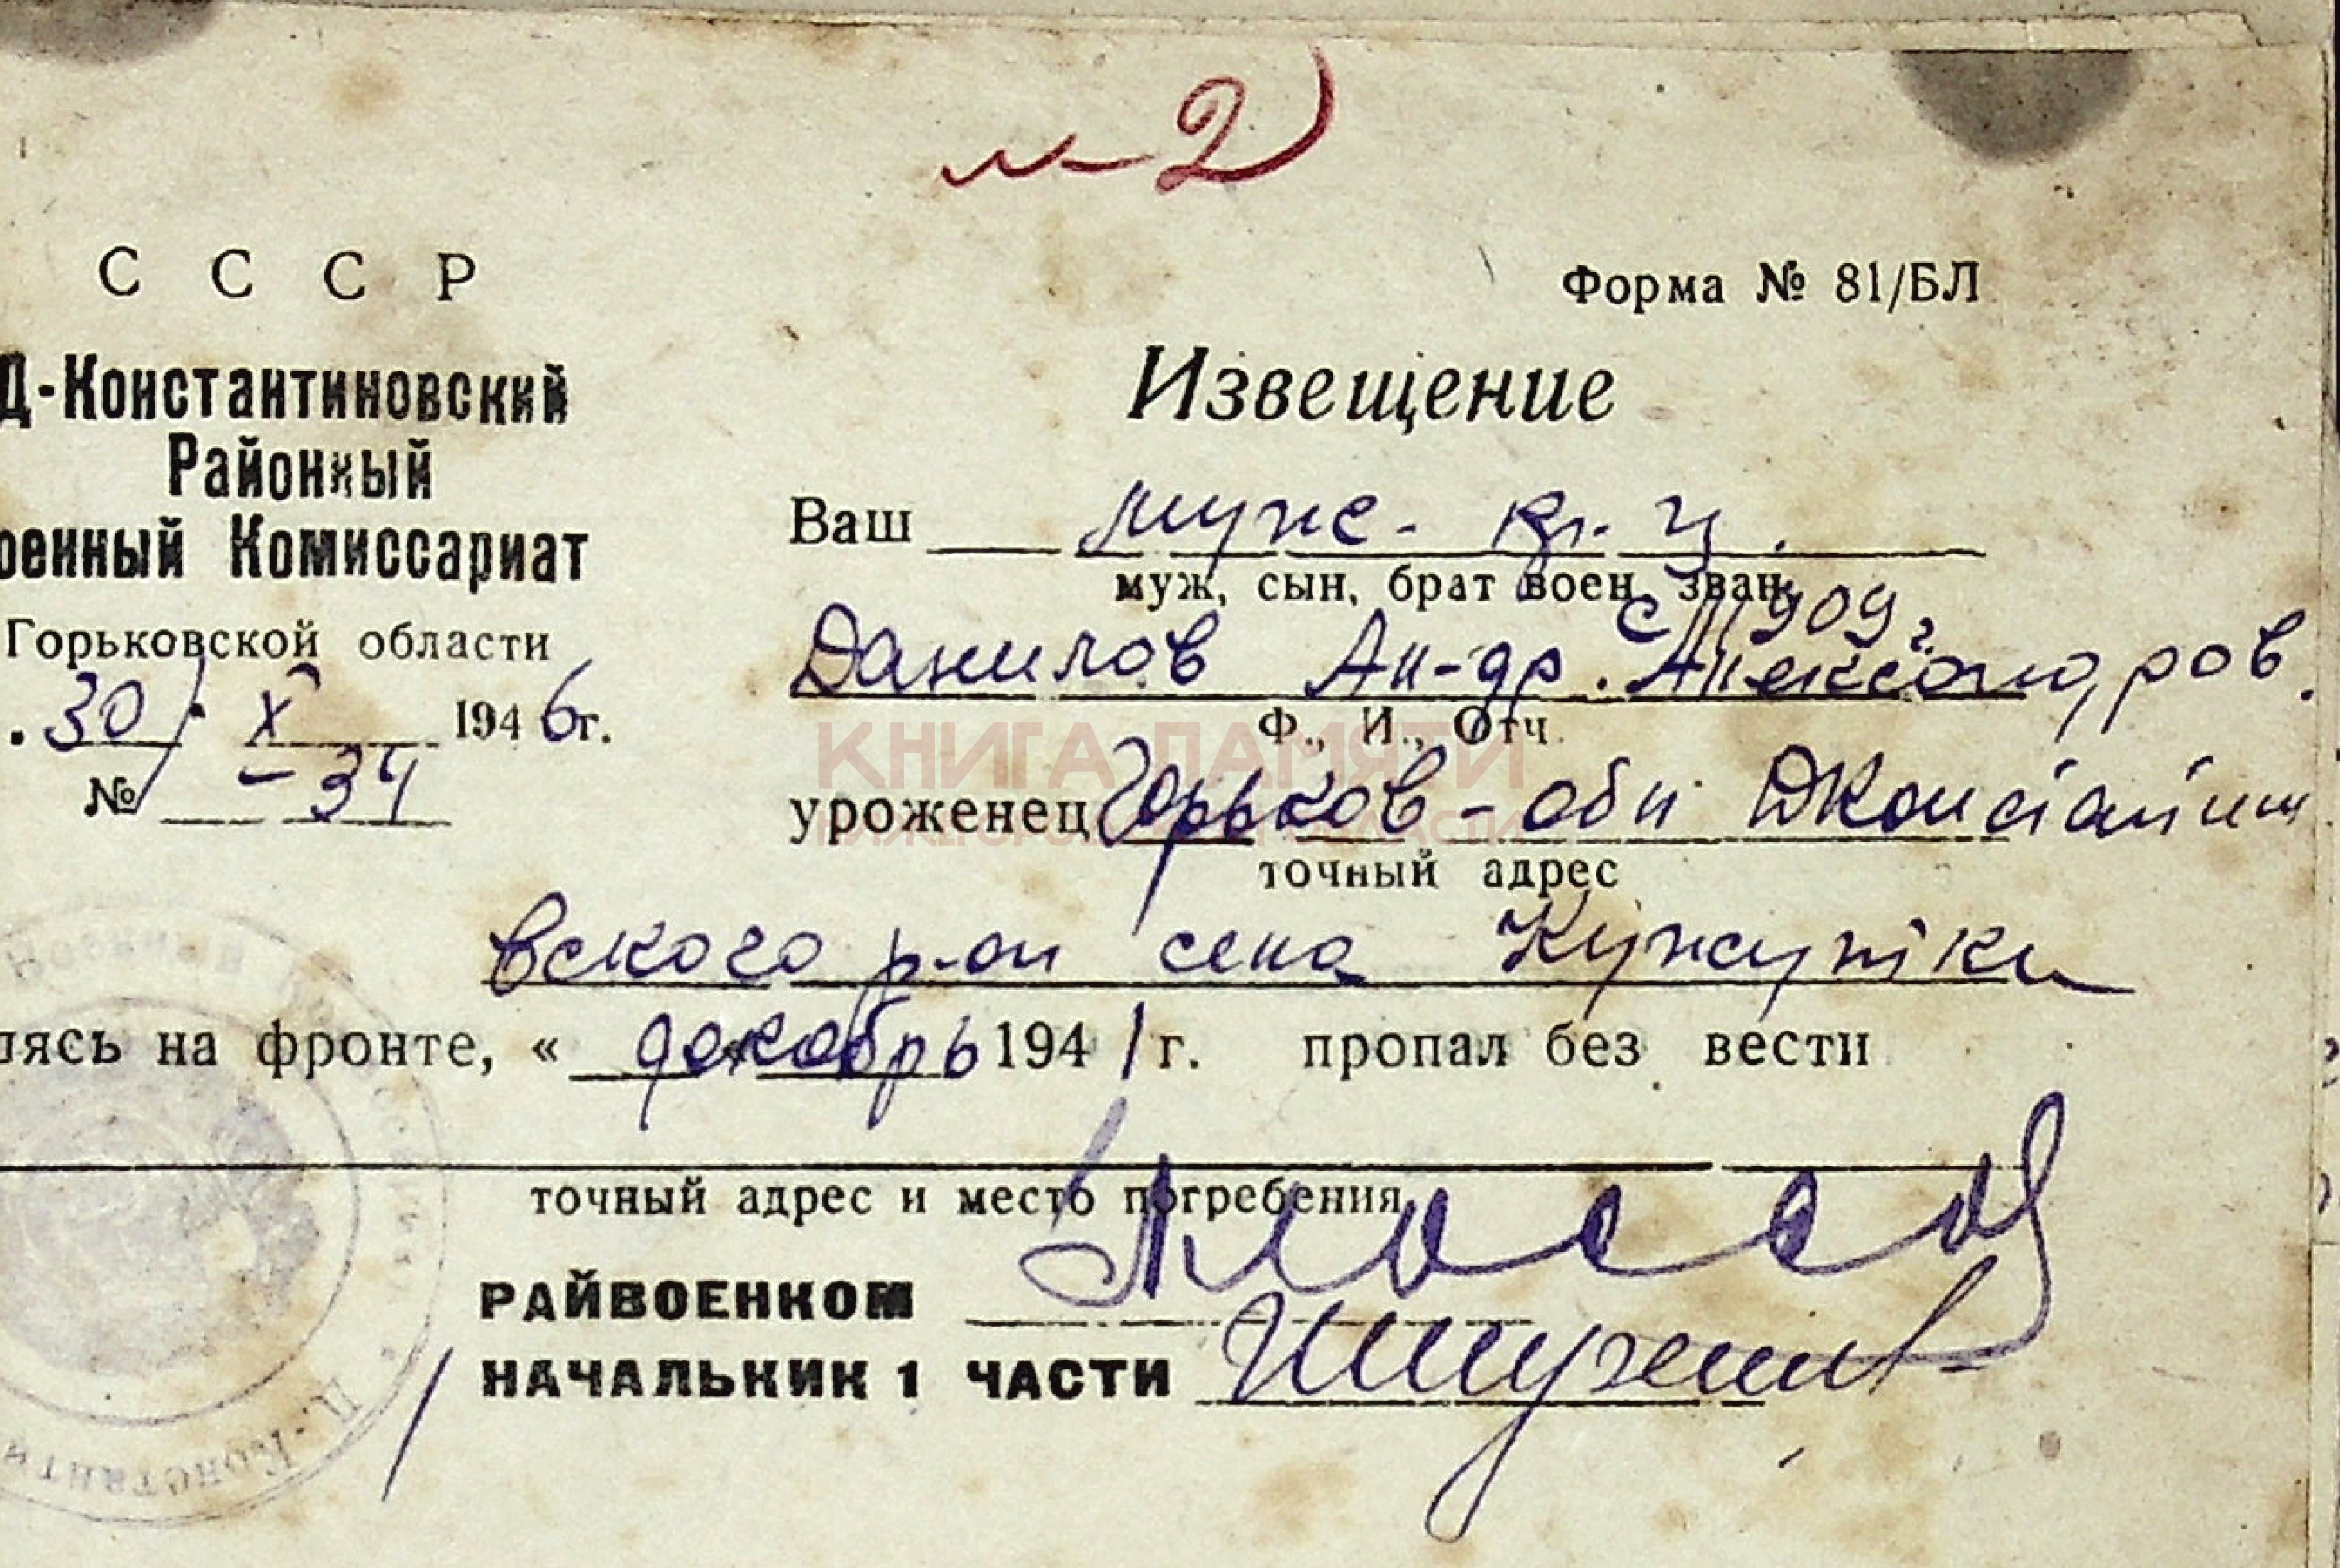 м-2
С С С Р
Форма № 81/БЛ
Д-Константиновский
Районный
оенный Комиссариат
Горьковской области
30 X 1946 г.
№ -34
Извещение
Ваш муж. кр. ц.
муж, сын, брат воен. зван.
с 1909 г.
Данилов Ан-др. Александров.
Ф., И., Отч.
КНИГА ПАМЯТИ
НИЖЕГОРОДСКОЙ ОБЛАСТИ
уроженец Горьков-обл ДКонстантин
точный адрес
вского р-он села Кужутки
лясь на фронте, « декабрь 1941 г. пропал без вести
точный адрес и место погребения
РАЙВОЕНКОМ
НАЧАЛЬНИК 1 ЧАСТИ
Д.-Константи